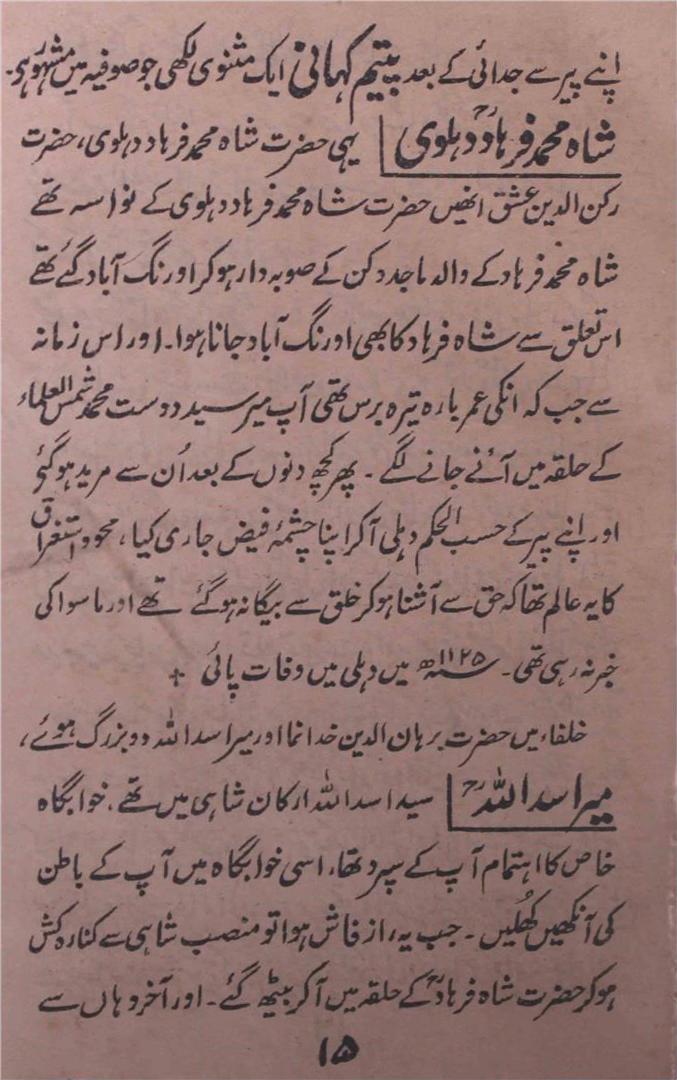 اپنے پیر سے جدائی کے بعد یتیم کہانی ایک مثنوی لکھی جو صوفیہ میں مشہور ہے۔
شاہ محمد فرہادؒ دہلوی | یہی حضرت شاہ محمد فرہاد دہلوی، حضرت
رکن الدین عشق انھیں حضرت شاہ محمد فرہاد دہلوی کے نواسہ تھے
شاہ محمد فرہاد کے والد ماجد دکن کے صوبہ دار ہو کر اورنگ آباد گئے تھے
اس تعلق سے شاہ فرہاد کا بھی اورنگ آباد جانا ہوا۔ اور اس زمانہ
سے جب کہ انکی عمر بارہ تیرہ برس تھی آپ میر سید دوست محمد شمس العلماء
کے حلقہ میں آنے جانے لگے۔ پھر کچھ دنوں کے بعد اُن سے مرید ہو گئے
اور اپنے پیر کے حسب الحکم دہلی آ کر اپنا چشمۂ فیض جاری کیا، محو و استغراق
کا یہ عالم تھا کہ حق سے آشنا ہو کر خلق سے بیگانہ ہو گئے تھے اور ماسوا کی
خبر نہ رہی تھی۔ سنہ ۱۱۲۵ھ میں دہلی میں وفات پائی +
خلفاء میں حضرت برہان الدین خدانما اور میر اسد اللہ دو بزرگ ہوئے،
میر اسد اللہؒ | سید اسد اللہ ارکان شاہی میں تھے۔ خوابگاہ
خاص کا اہتمام آپ کے سپرد تھا، اسی خوابگاہ میں آپ کے باطن
کی آنکھیں کھُلیں۔ جب یہ راز فاش ہوا تو منصب شاہی سے کنارہ کش
ہو کر حضرت شاہ فرہادؒ کے حلقہ میں آ کر بیٹھ گئے۔ اور آخر وہاں سے
۱۵